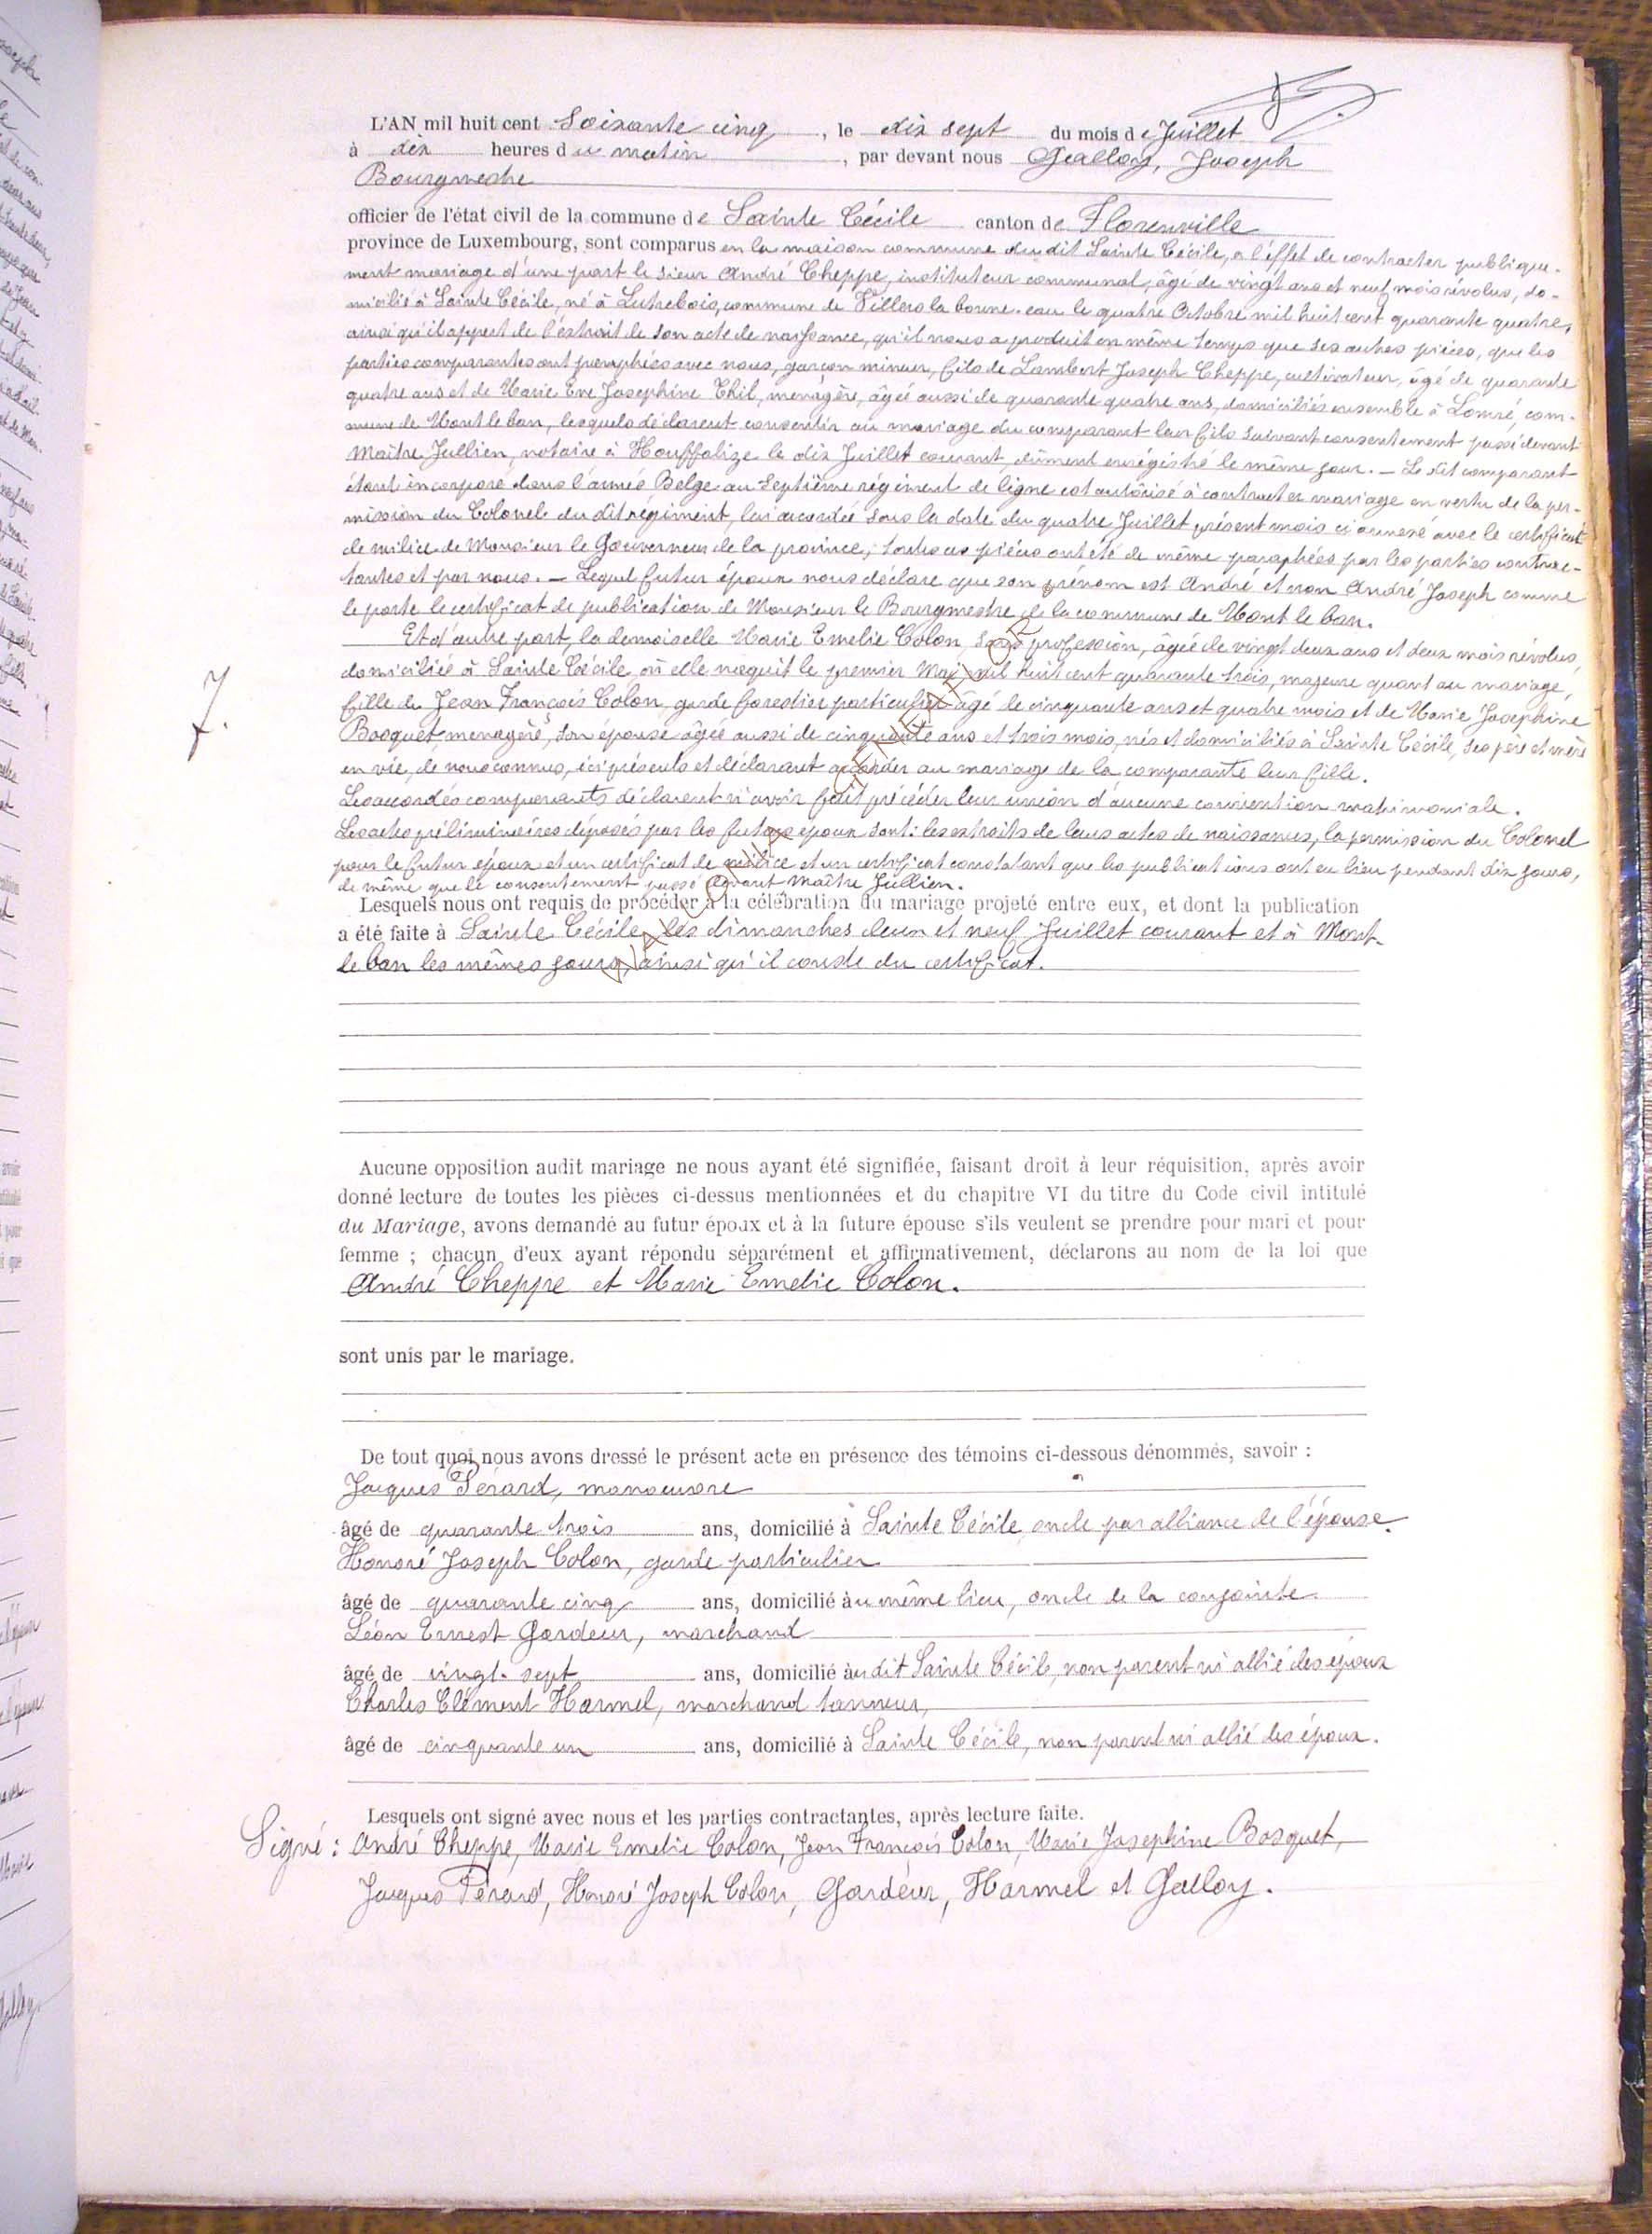 L'AN mil huit cent Soixante cinq, le dix sept du mois de Juillet
à dix heures du matin, par devant nous Galloy, Joseph
Bourgmestre
officier de l'état civil de la commune de Sainte Cécile canton de Florenville
province de Luxembourg, sont comparus en la maison commune du dit Sainte Cécile, a l'éffet de contracter publique-
ment mariage d'une part le sieur André Cheppe, instituteur communal, âgé de vingt ans et neuf mois révolus, do-
micilié à Sainte Cécile, né à Lutrebois, commune de Villers la bonne-eau le quatre Octobre mil huit cent quarante quatre,
ainsi qu'il appert de l'éxtrait de son acte de naissance, qu'il nous a produit en même temps que ses autres pièces, que les
parties comparantes ont paraphées avec nous, garçon mineur, fils de Lambert Joseph Cheppe, cultivateur, âgé de quarante
quatre ans et de Marie Eve Josephine Thil, menagère, âgée aussi de quarante quatre ans, domiciliés ensemble à Lomré, com-
mune de Mont le ban, lesquels déclarent consentir au mariage du comparant leur fils suivant consentement passé devant
Maître Jullien, notaire à Houffalize le dix Juillet courant, dûment enrégistré le même jour. — Le dit comparant
étant incorporé dans l'armée Belge au Septième régiment de ligne est autorisé à contracter mariage en vertu de la per-
mission du Colonel du dit régiment, lui accordée sous la date du quatre Juillet présent mois ci annexé avec le certificat
de milice de Monsieur le Gouverneur de la province; toutes ces pièces ont été de même paraphées par les parties contrac-
tantes et par nous. — Lequel futur époux nous déclare que son prénom est André et non André Joseph comme
le porte le certificat de publication de Monsieur le Bourgmestre de la commune de Mont le ban.
Et d'autre part, la demoiselle Marie Emelie Colon, sans profession, âgée de vingt deux ans et deux mois révolus,
domiciliée à Sainte Cécile, où elle naquit le premier Mai mil huit cent quarante trois, majeure quant au mariage,
7. fille de Jean François Colon, garde forestier particulier âgé de cinquante ans et quatre mois et de Marie Josephine
Bosquet menagère, son épouse âgée aussi de cinquante ans et trois mois, nés et domiciliés à Sainte Cécile, ses père et mère
en vie, de nous connus, ici présents et déclarant accorder au mariage de la comparante leur fille.
Les accordés comparants déclarent n'avoir fait précéder leur union d'aucune convention matrimoniale.
Les actes préliminaires déposés par les futurs époux sont: les extraits de leurs actes de naissances, la permission du Colonel
pour le futur époux et un certificat de milice et un certificat constatant que les publications ont eu lieu pendant dix jours,
de même que le consentement passé devant Maître Jullien.
Lesquels nous ont requis de procéder à la célébration du mariage projeté entre eux, et dont la publication
a été faite à Sainte Cécile, les dimanches deux et neuf Juillet courant et à Mont-
le ban les mêmes jours, ainsi qu'il conste du certificat.
Aucune opposition audit mariage ne nous ayant été signifiée, faisant droit à leur réquisition, après avoir
donné lecture de toutes les pièces ci-dessus mentionnées et du chapitre VI du titre du Code civil intitulé
du Mariage, avons demandé au futur époux et à la future épouse s'ils veulent se prendre pour mari et pour
femme ; chacun d'eux ayant répondu séparément et affirmativement, déclarons au nom de la loi que
André Cheppe et Marie Emelie Colon.
sont unis par le mariage.
De tout quoi nous avons dressé le présent acte en présence des témoins ci-dessous dénommés, savoir :
Jacques Pérard, manoeuvre
âgé de quarante trois ans, domicilié à Sainte Cécile, oncle par alliance de l'épouse.
Honoré Joseph Colon, garde particulier
âgé de quarante cinq ans, domicilié au même lieu, oncle de la conjointe.
Léon Ernest Gardeur, marchand
âgé de vingt-sept ans, domicilié au dit Sainte Cécile, non parent ni allié des époux
Charles Clément Harmel, marchand tanneur,
âgé de cinquante un ans, domicilié à Sainte Cécile, non parent ni allié des époux.
Lesquels ont signé avec nous et les parties contractantes, après lecture faite.
Signé : André Cheppe, Marie Emelie Colon, Jean François Colon, Marie Josephine Bosquet,
Jacques Pérard, Honoré Joseph Colon, Gardeur, Harmel et Galloy.